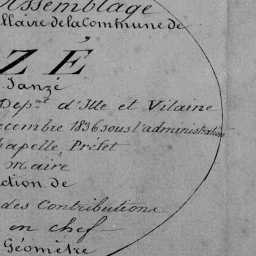 Assemblage
llaire de la Commune de
ZÉ
Janzé
Dep.nt d'Ille et Vilaine
écembre 1836 sous l'administration
hapelle, Préfet
maire
ction de
des Contributions
en chef
Géomètre